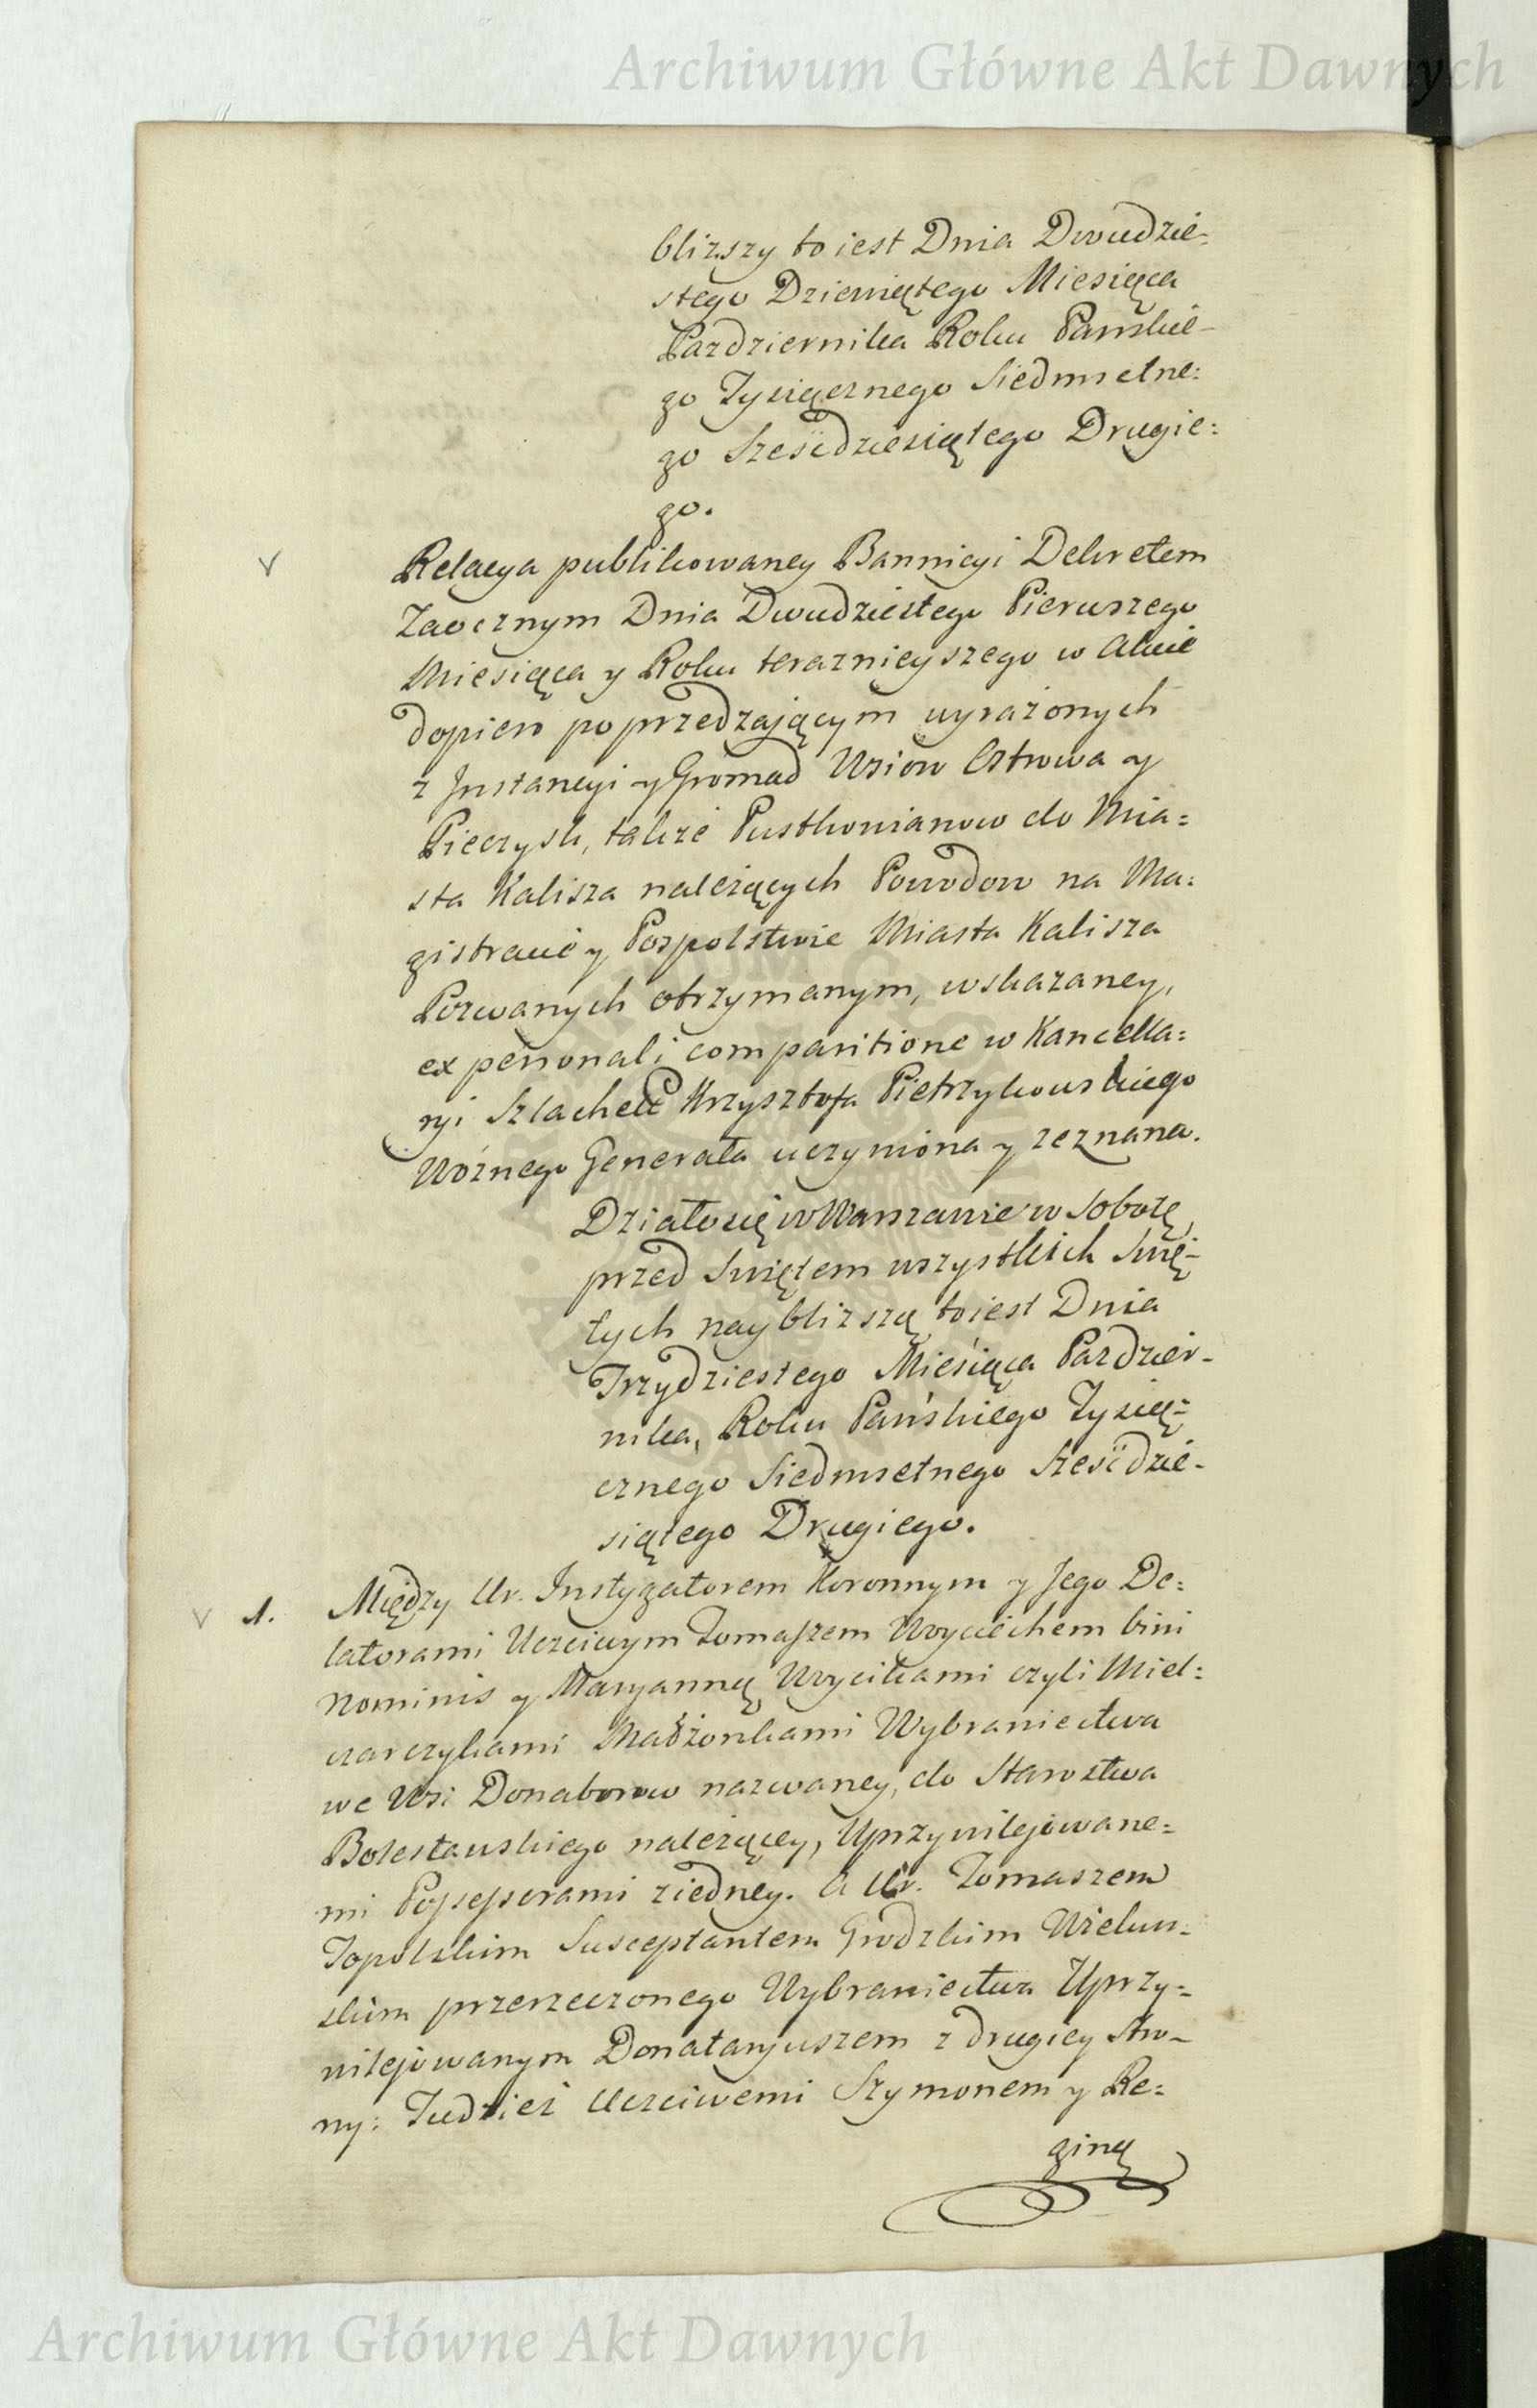 Archiwum Główne Akt Dawnych
blizszy to iest Dnia Dwudzie-
stego Dziewiętego Miesięca
Pazdziernika Roku Panskie-
go Tysiącznego Siedmsetne:
go Szesćdziesiątego Drugie:
go.
Relacya publikowaney Bannicyi Dekretem
Zaocznym Dnia Dwudziestego Pierwszego
Miesiąca y Roku teraznieyszego w Akcie
dopiero poprzedzającym wyrażonych
z Instancyi y Gromad Wsiow Ostrowa y
Pieczysk, także Pustkowianow do Mia=
sta Kalisza należących Powodow na Ma:
gistracie y Pospolstwie Miasta Kalisza
Pozwanych otrzymanym, wskazaney,
ex personali comparitione w Kancella:
ryi Szlachett Krzysztofa Pietrzykowskiego
Woznego Generała uczyniona y zeznana.
Działo się w Warszawie w Sobotę,
przed Swiętem wszystkich Swię-
tych naybliższą to iest Dnia
Trzydziestego Miesiąca Pazdzier-
nika, Roku Pańskiego Tysią=
cznego Siedmsetnego Szesćdzie-
siątego Drugiego.
1. Między Ur. Instygatorem Koronnym y Jego De:
latorami Uczciwym Tomaszem Woyciechem bini
Nominis y Maryanną Woycikami czyli Miel:
czarczykami Małżonkami Wybraniectwa
we Wsi Donaborow nazwaney, do Starostwa
Bolesławskiego należącey, Uprzywilejowane=
mi Possessorami ziedney. A Ur. Tomaszem
Topolskim Susceptantem Grodzkim Wielun-
skim przerzeczonego Wybraniectwa Uprzy=
wilejowanym Donataryuszem z drugiey stro-
ny: Tudzież Uczciwemi Szymonem y Re=
giną
Archiwum Główne Akt Dawnych